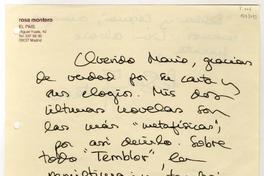 rosa montero
EL PAIS
Miguel Yuste, 40
28017 Madrid
Querido Mario, gracias
de verdad por su carta y
sus elogios. Mis dos
últimas novelas son
las más "metafísicas",
por así decirlo. Sobre
todo "Temblor", la